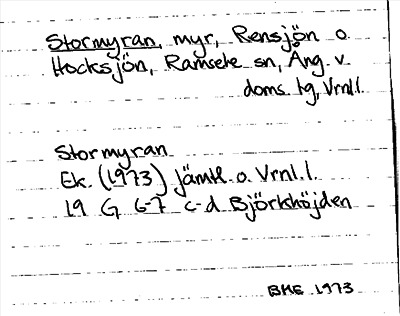 Stormyran, myr, Rensjön o.
Hocksjön, Ramsele sn, Ång. v.
doms. tg, Vrnl.l.
Stormyran
Ek. (1973) Jämtl. o. Vrnl.l.
19 G 6-7 c-d Björkhöjden
BHE 1973